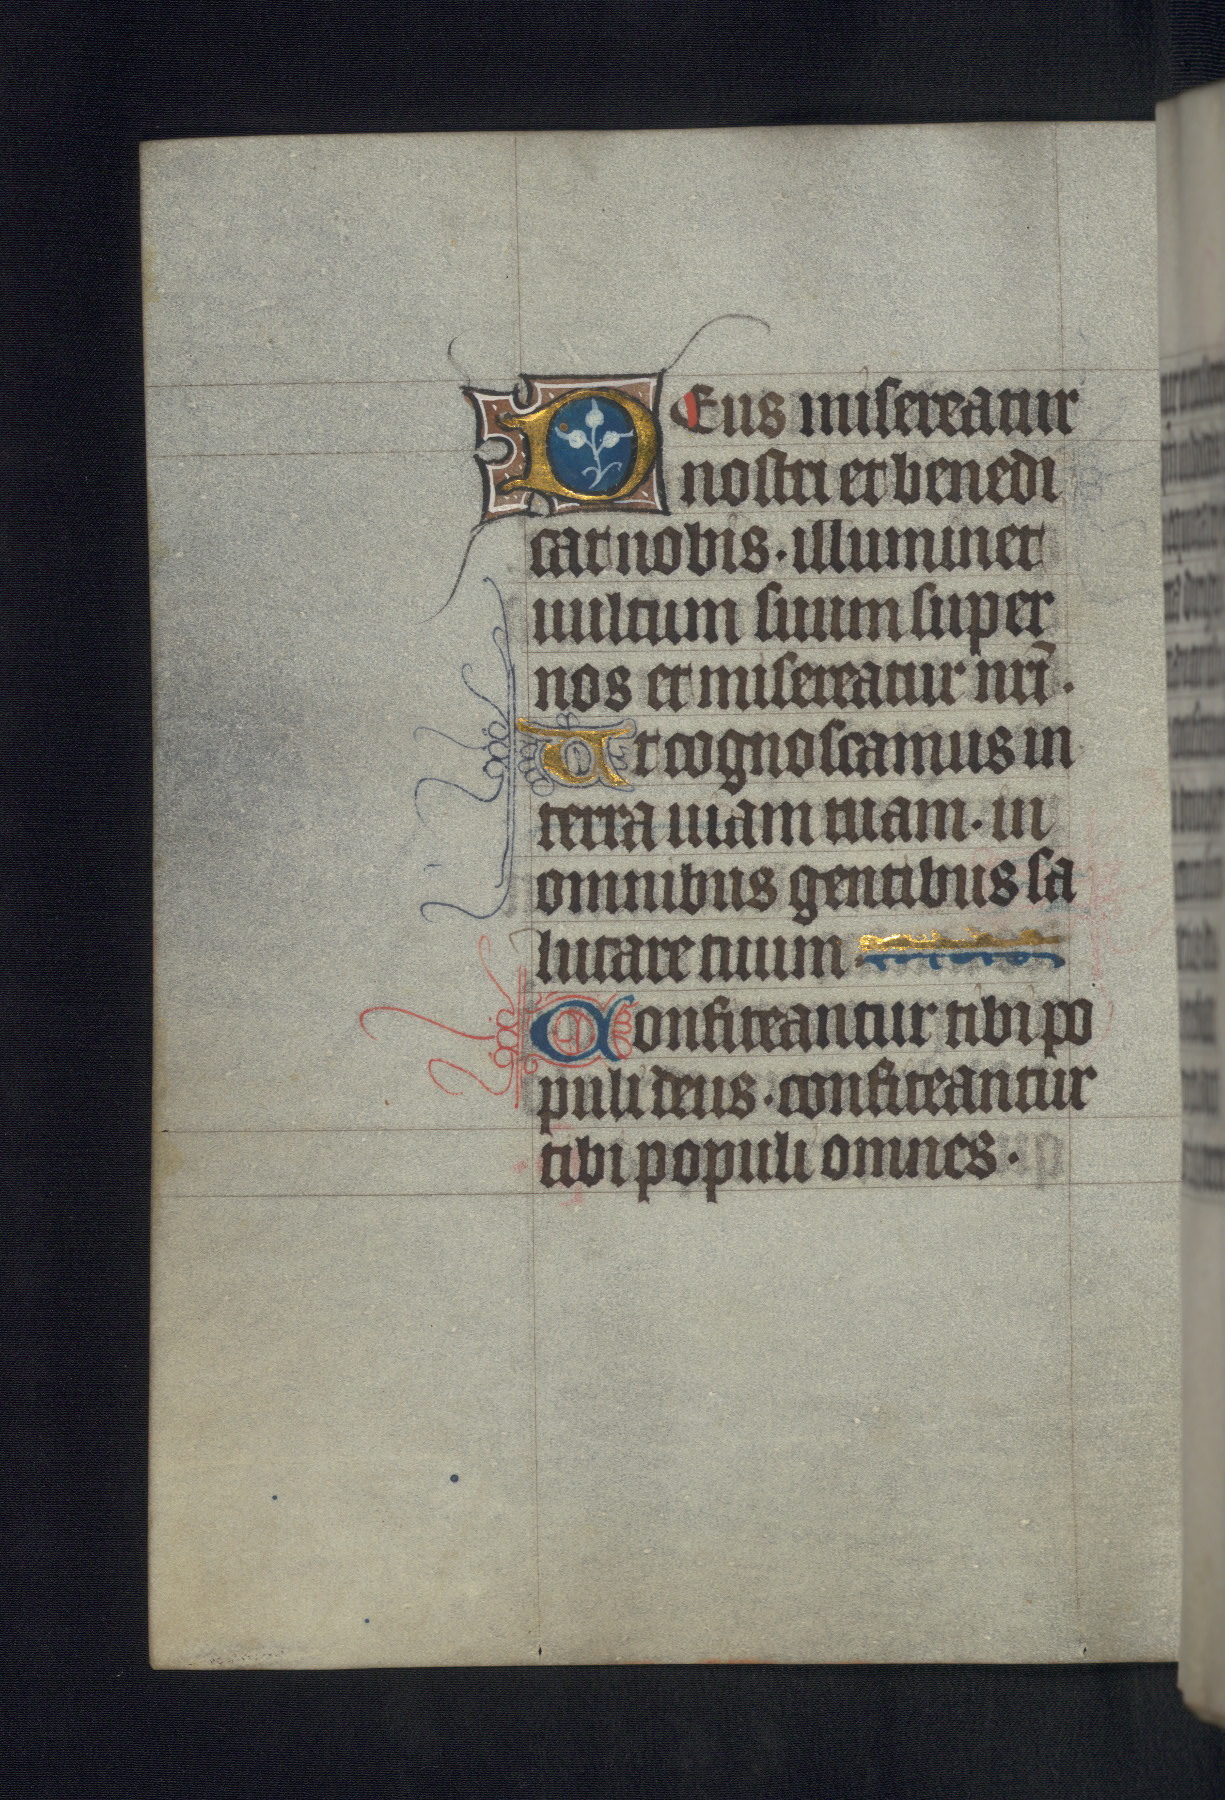 DEus misereatur
nostri et benedi
cat nobis. illuminet
uultum suum super
nos et misereatur nrī.
Ut cognoscamus in
terra uiam tuam. in
omnibus gentibus sa
lutare tuum
Confiteantur tibi po
puli deus. confiteantur
tibi populi omnes.